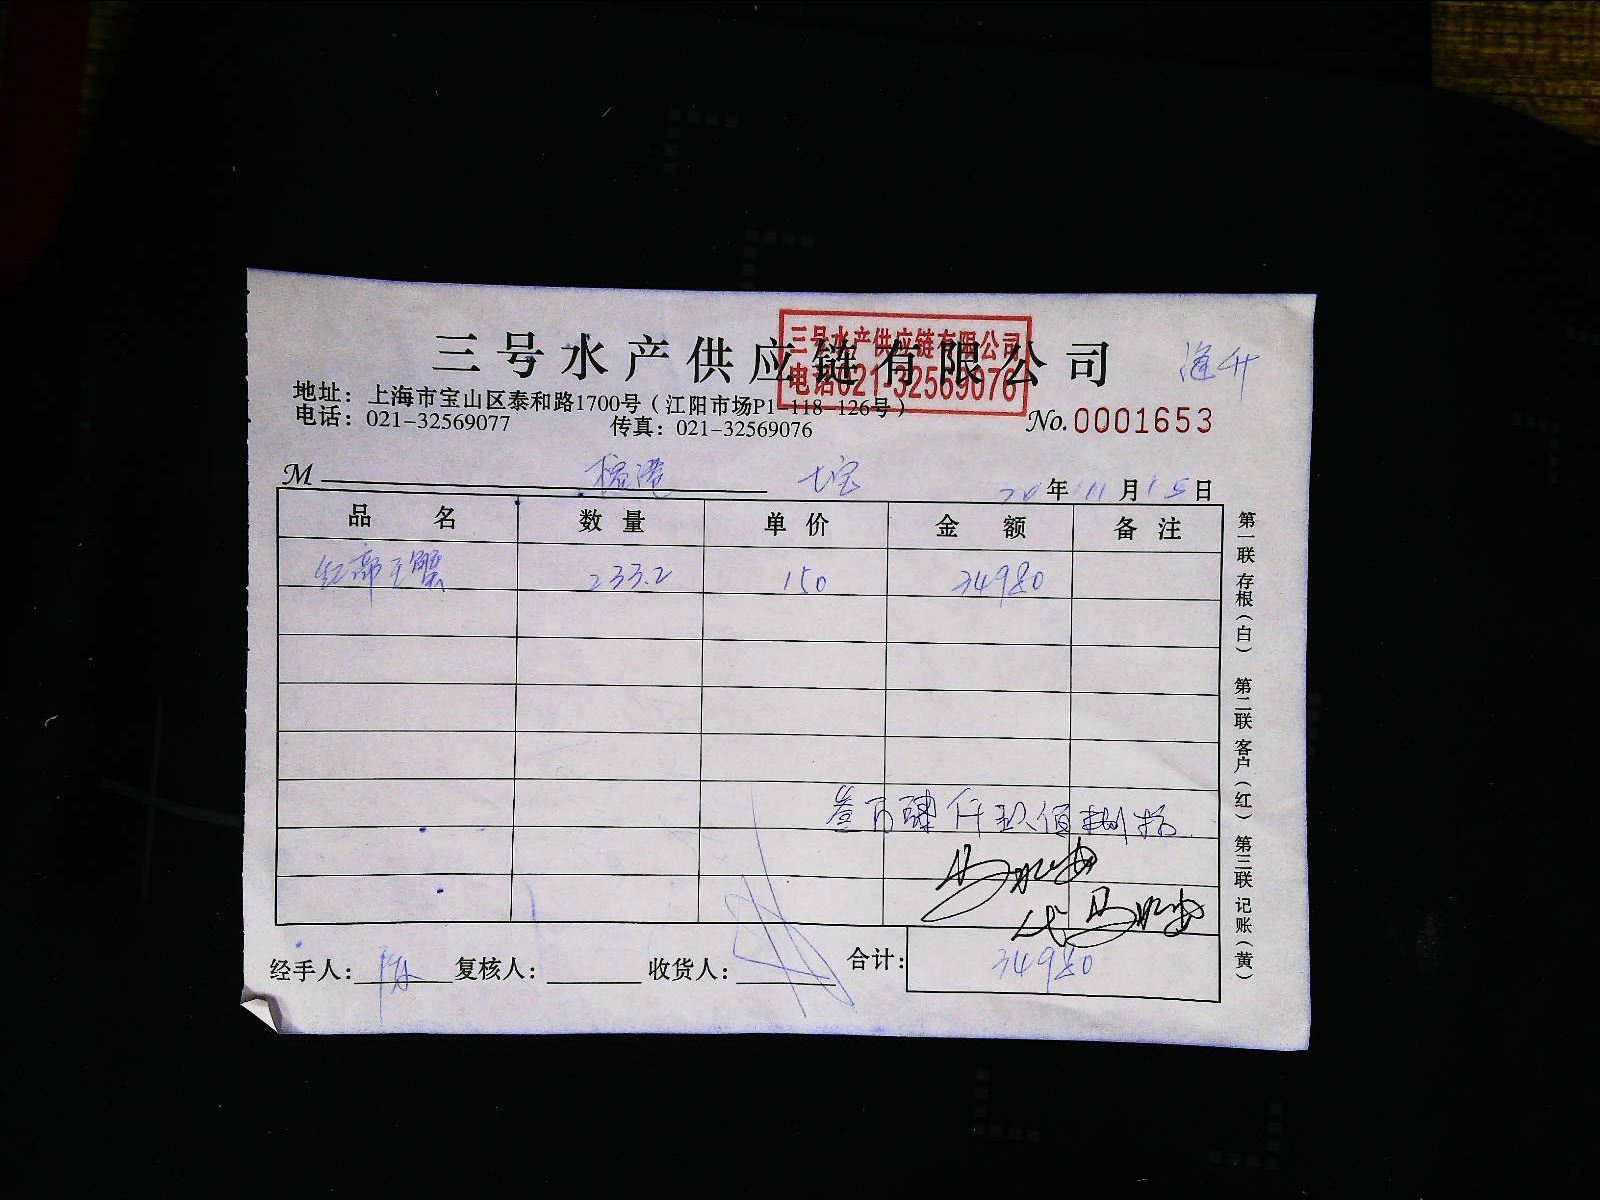 三号水产供应链有限公司
三号水产供应链有限公司
电话021-32569076
地址：上海市宝山区泰和路1700号（江阳市场P1-118-126号）
电话：021-32569077 传真：021-32569076
No.0001653
M 榕港 七宝 20年11月15日
品名 数量 单价 金额 备注
红帝王蟹 233.2 150 34980
叁万肆仟玖佰捌拾
经手人： 复核人： 收货人： 合计：34980
第一联 存根（白） 第二联 客户（红） 第三联 记账（黄）